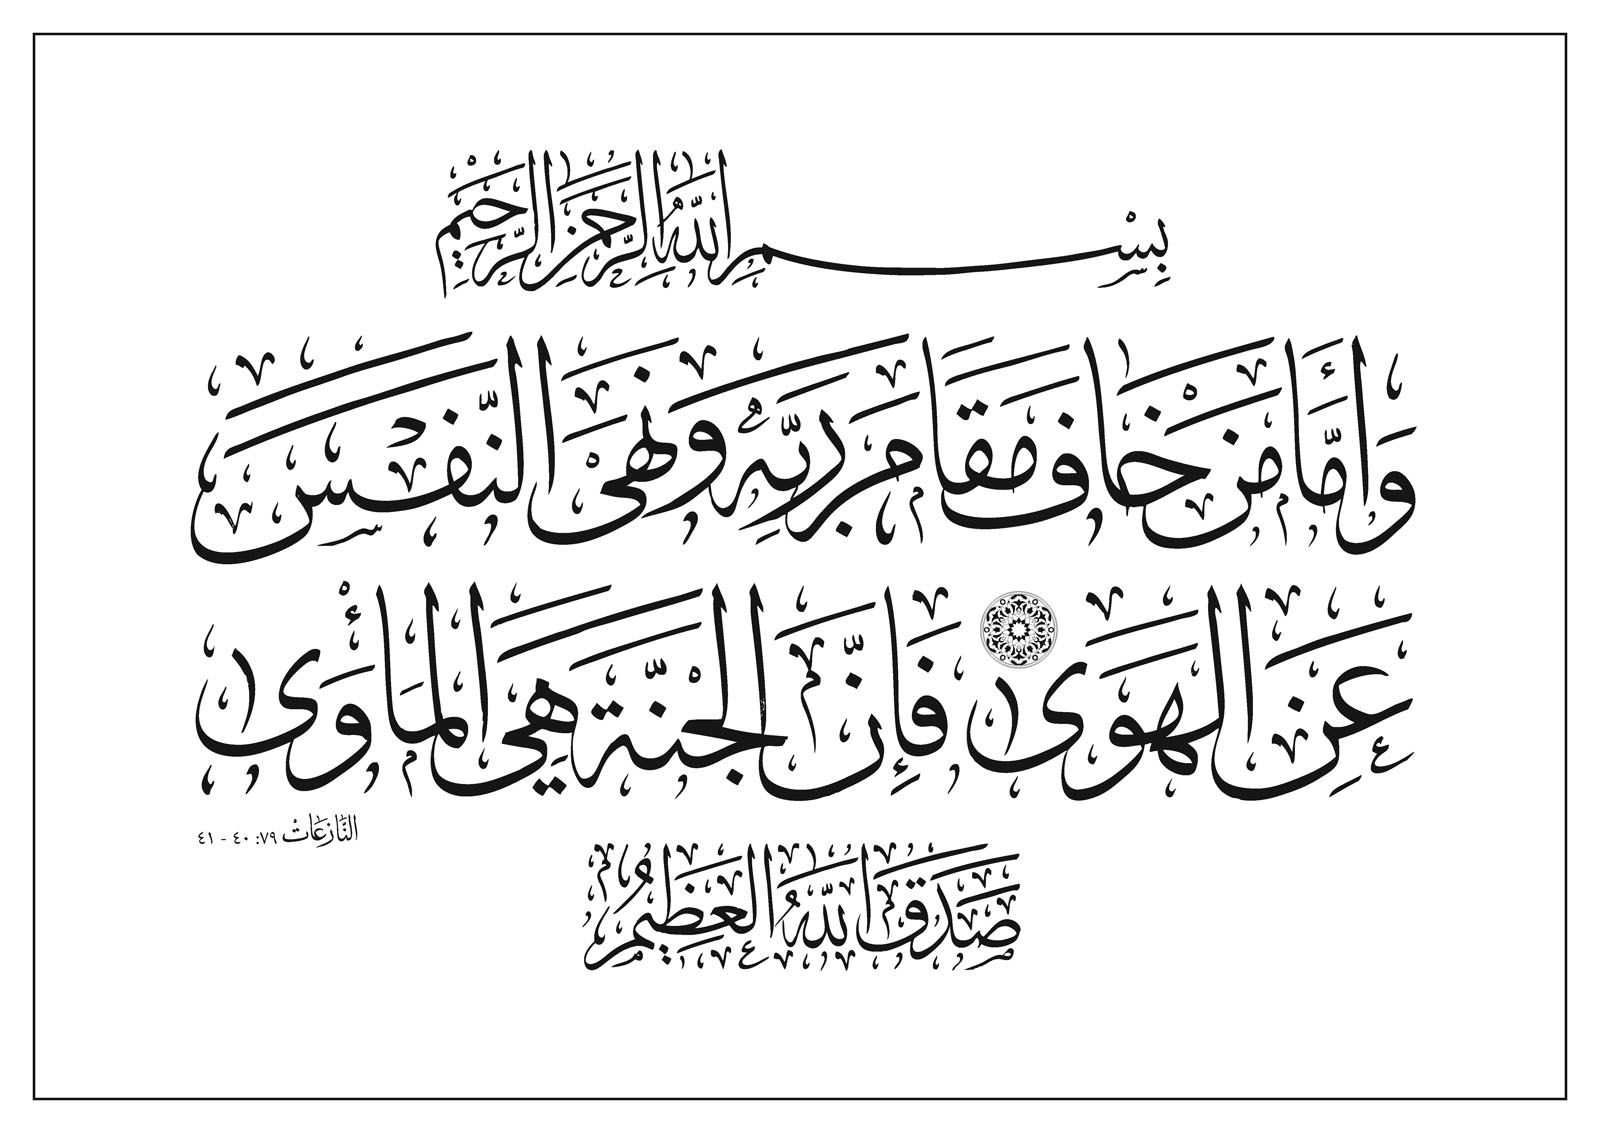 بِسْمِ اللَّهِ الرَّحْمَٰنِ الرَّحِيمِ
وَأَمَّا مَنْ خَافَ مَقَامَ رَبِّهِ وَنَهَى النَّفْسَ
عَنِ الْهَوَىٰ فَإِنَّ الْجَنَّةَ هِيَ الْمَأْوَىٰ
النَّازِعَاتْ ٧٩: ٤٠ - ٤١
صَدَقَ اللَّهُ الْعَظِيمُ